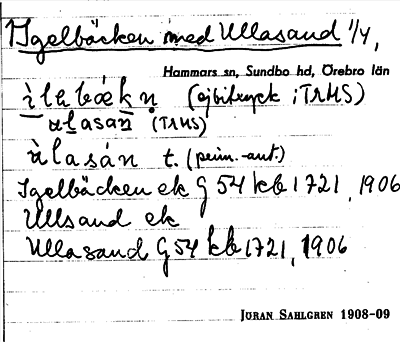 Igelbäcken med Ullasand 1/4,
Hammars sn, Sundbo hd, Örebro län
ìlabækṇ (ej bitryck i TRHS)
ulasan (TRHS)
ùlasán t. (pers.-ant.)
Igelbäcken ek G 54 kb 1721, 1906
Ullsand ek
Ullasand G 54 kb 1721, 1906
JÖRAN SAHLGREN 1908-09